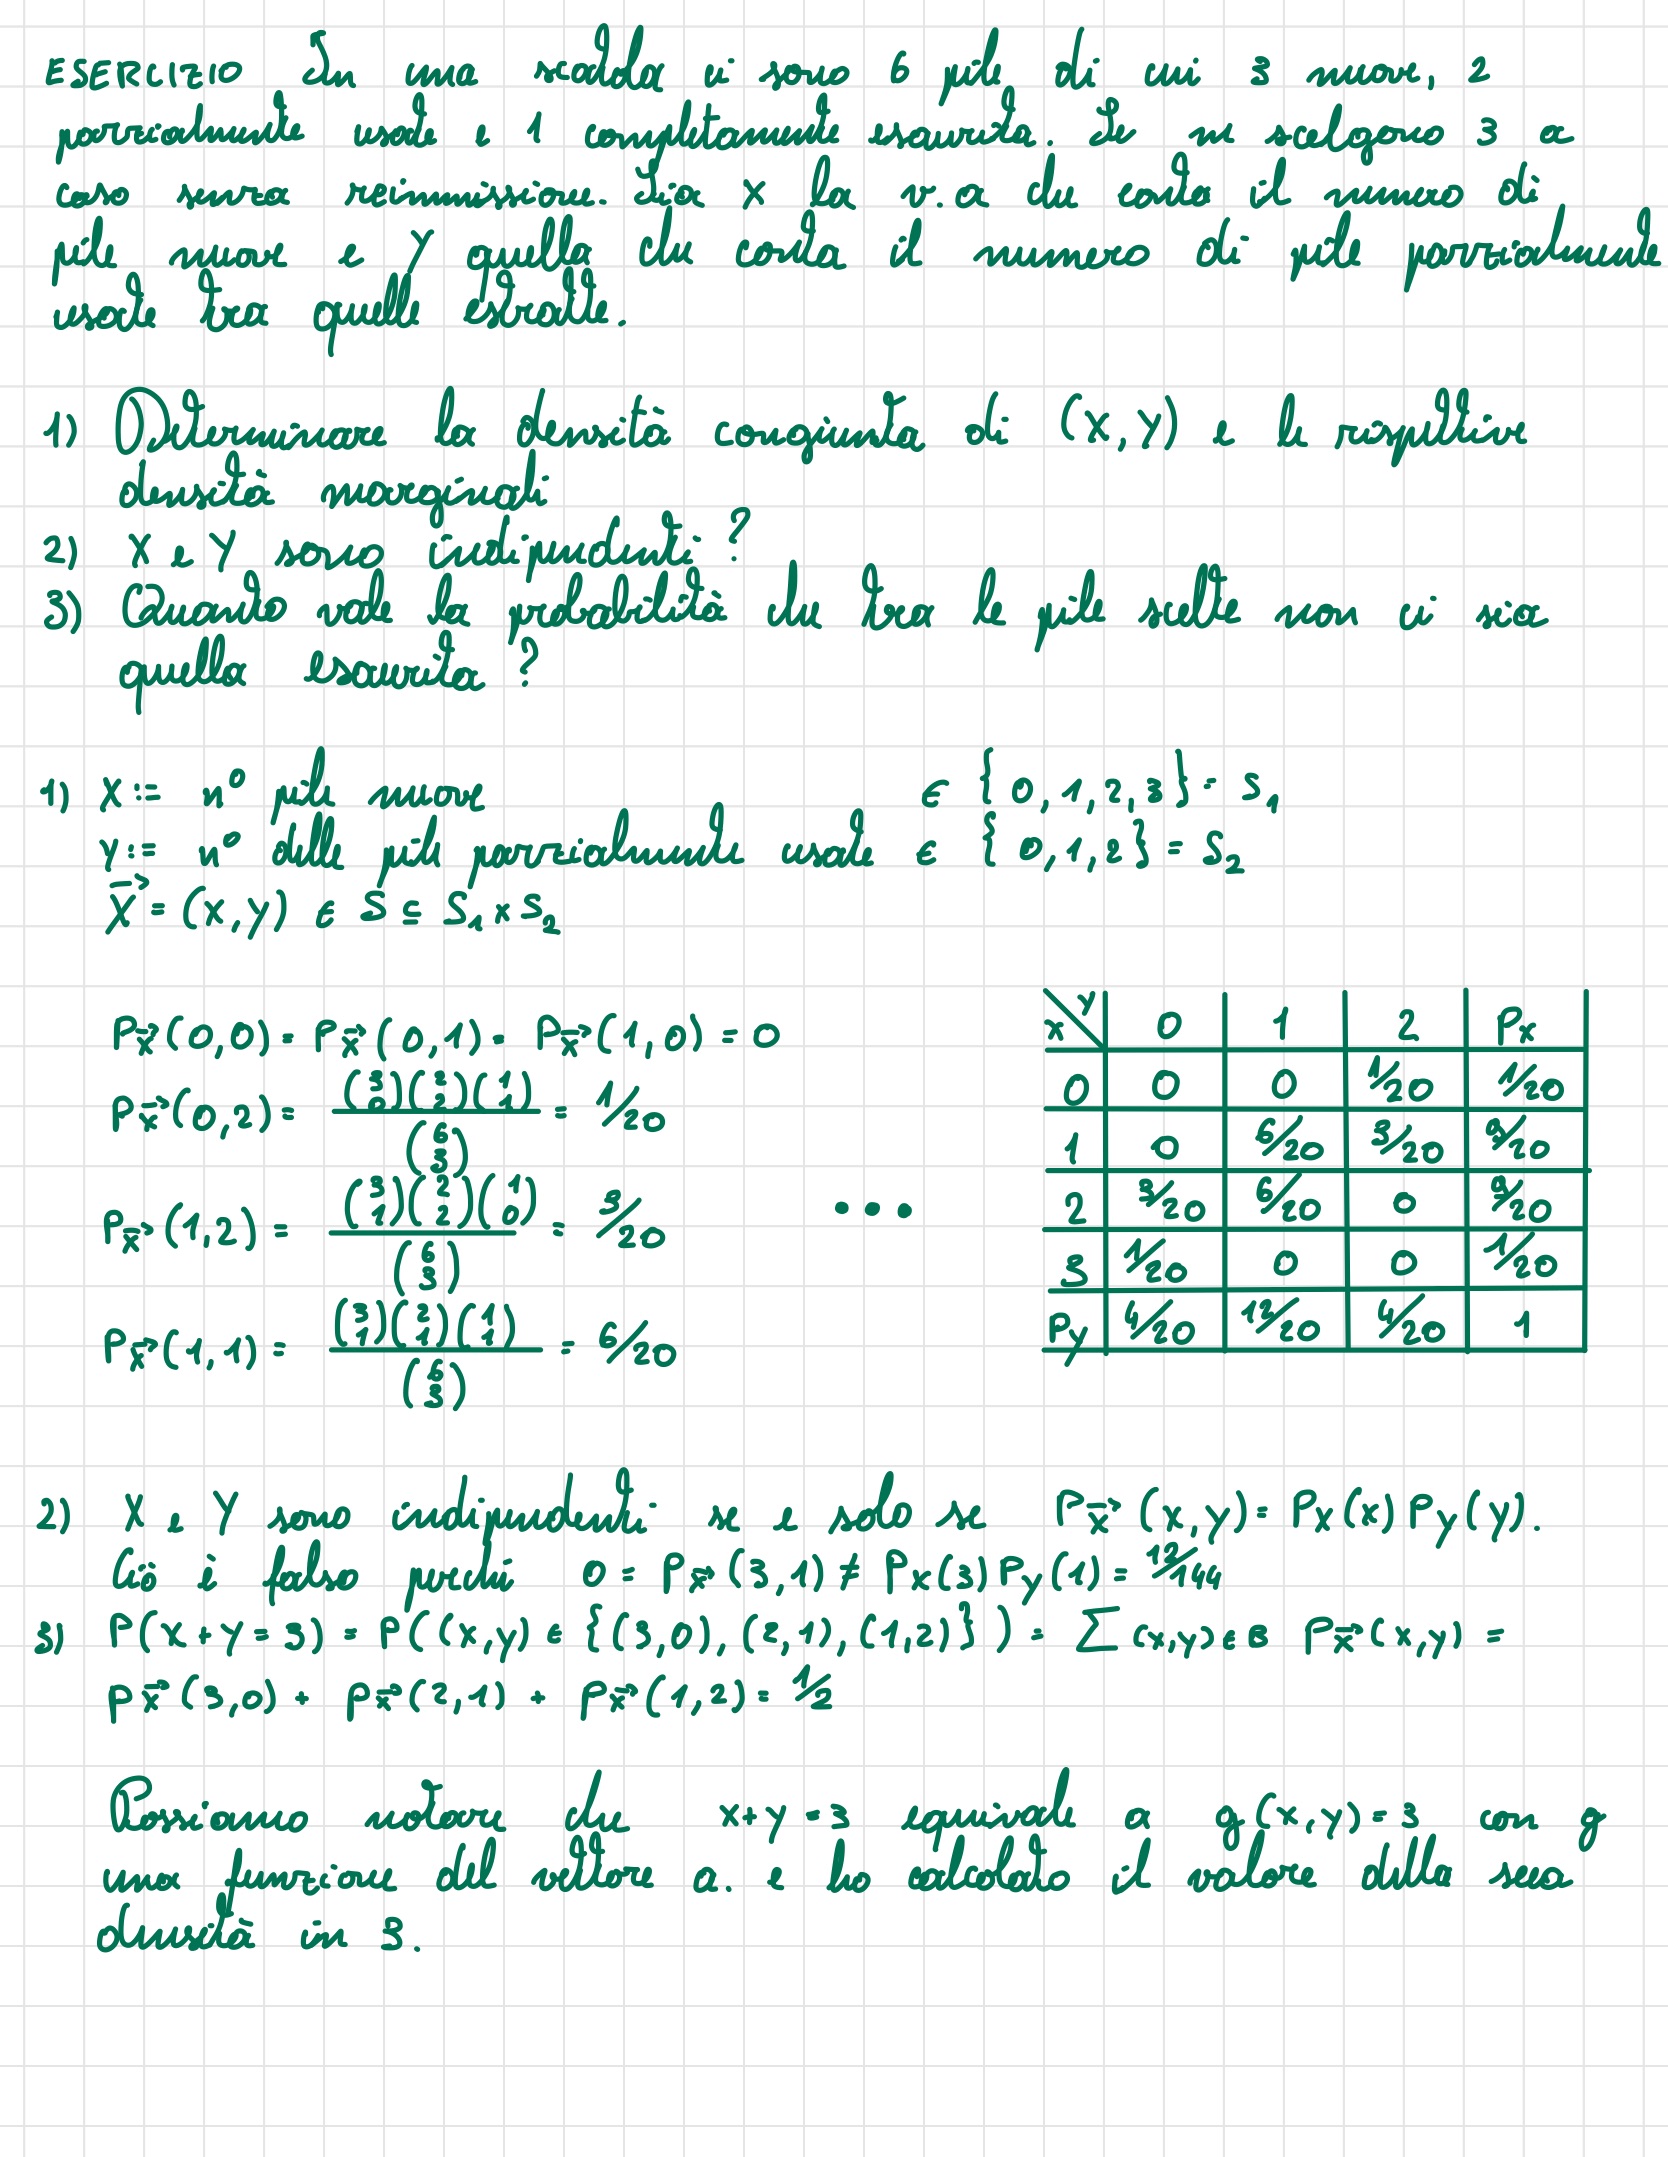 ESERCIZIO In una scatola ci sono 6 pile di cui 3 nuove, 2
parzialmente usate e 1 completamente esaurita. Se ne scelgono 3 a
caso senza reimmissione. Sia X la v.a che conta il numero di
pile nuove e Y quella che conta il numero di pile parzialmente
usate tra quelle estratte.
1) Determinare la densità congiunta di (X,Y) e le rispettive
densità marginali
2) X e Y sono indipendenti?
3) Quanto vale la probabilità che tra le pile scelte non ci sia
quella esaurita?
1) X := n° pile nuove ∈ {0,1,2,3} = S₁
Y := n° delle pile parzialmente usate ∈ {0,1,2} = S₂
X⃗ = (X,Y) ∈ S ⊆ S₁ × S₂
P_X⃗(0,0) = P_X⃗(0,1) = P_X⃗(1,0) = 0
P_X⃗(0,2) = (3 0)(2 2)(1 1) / (6 3) = 1/20
P_X⃗(1,2) = (3 1)(2 2)(1 0) / (6 3) = 3/20 ...
P_X⃗(1,1) = (3 1)(2 1)(1 1) / (6 3) = 6/20
X\Y 0 1 2 P_X
0 0 0 1/20 1/20
1 0 6/20 3/20 9/20
2 3/20 6/20 0 9/20
3 1/20 0 0 1/20
P_Y 4/20 12/20 4/20 1
2) X e Y sono indipendenti se e solo se P_X⃗(x,y) = P_X(x) P_Y(y).
Ciò è falso perché 0 = P_X⃗(3,1) ≠ P_X(3) P_Y(1) = 12/144
3) P(X+Y=3) = P((X,Y) ∈ {(3,0), (2,1), (1,2)}) = ∑ (x,y)∈B P_X⃗(x,y) =
P_X⃗(3,0) + P_X⃗(2,1) + P_X⃗(1,2) = 1/2
Possiamo notare che X+Y=3 equivale a g(X,Y)=3 con g
una funzione del vettore a. e ho calcolato il valore della sua
densità in 3.